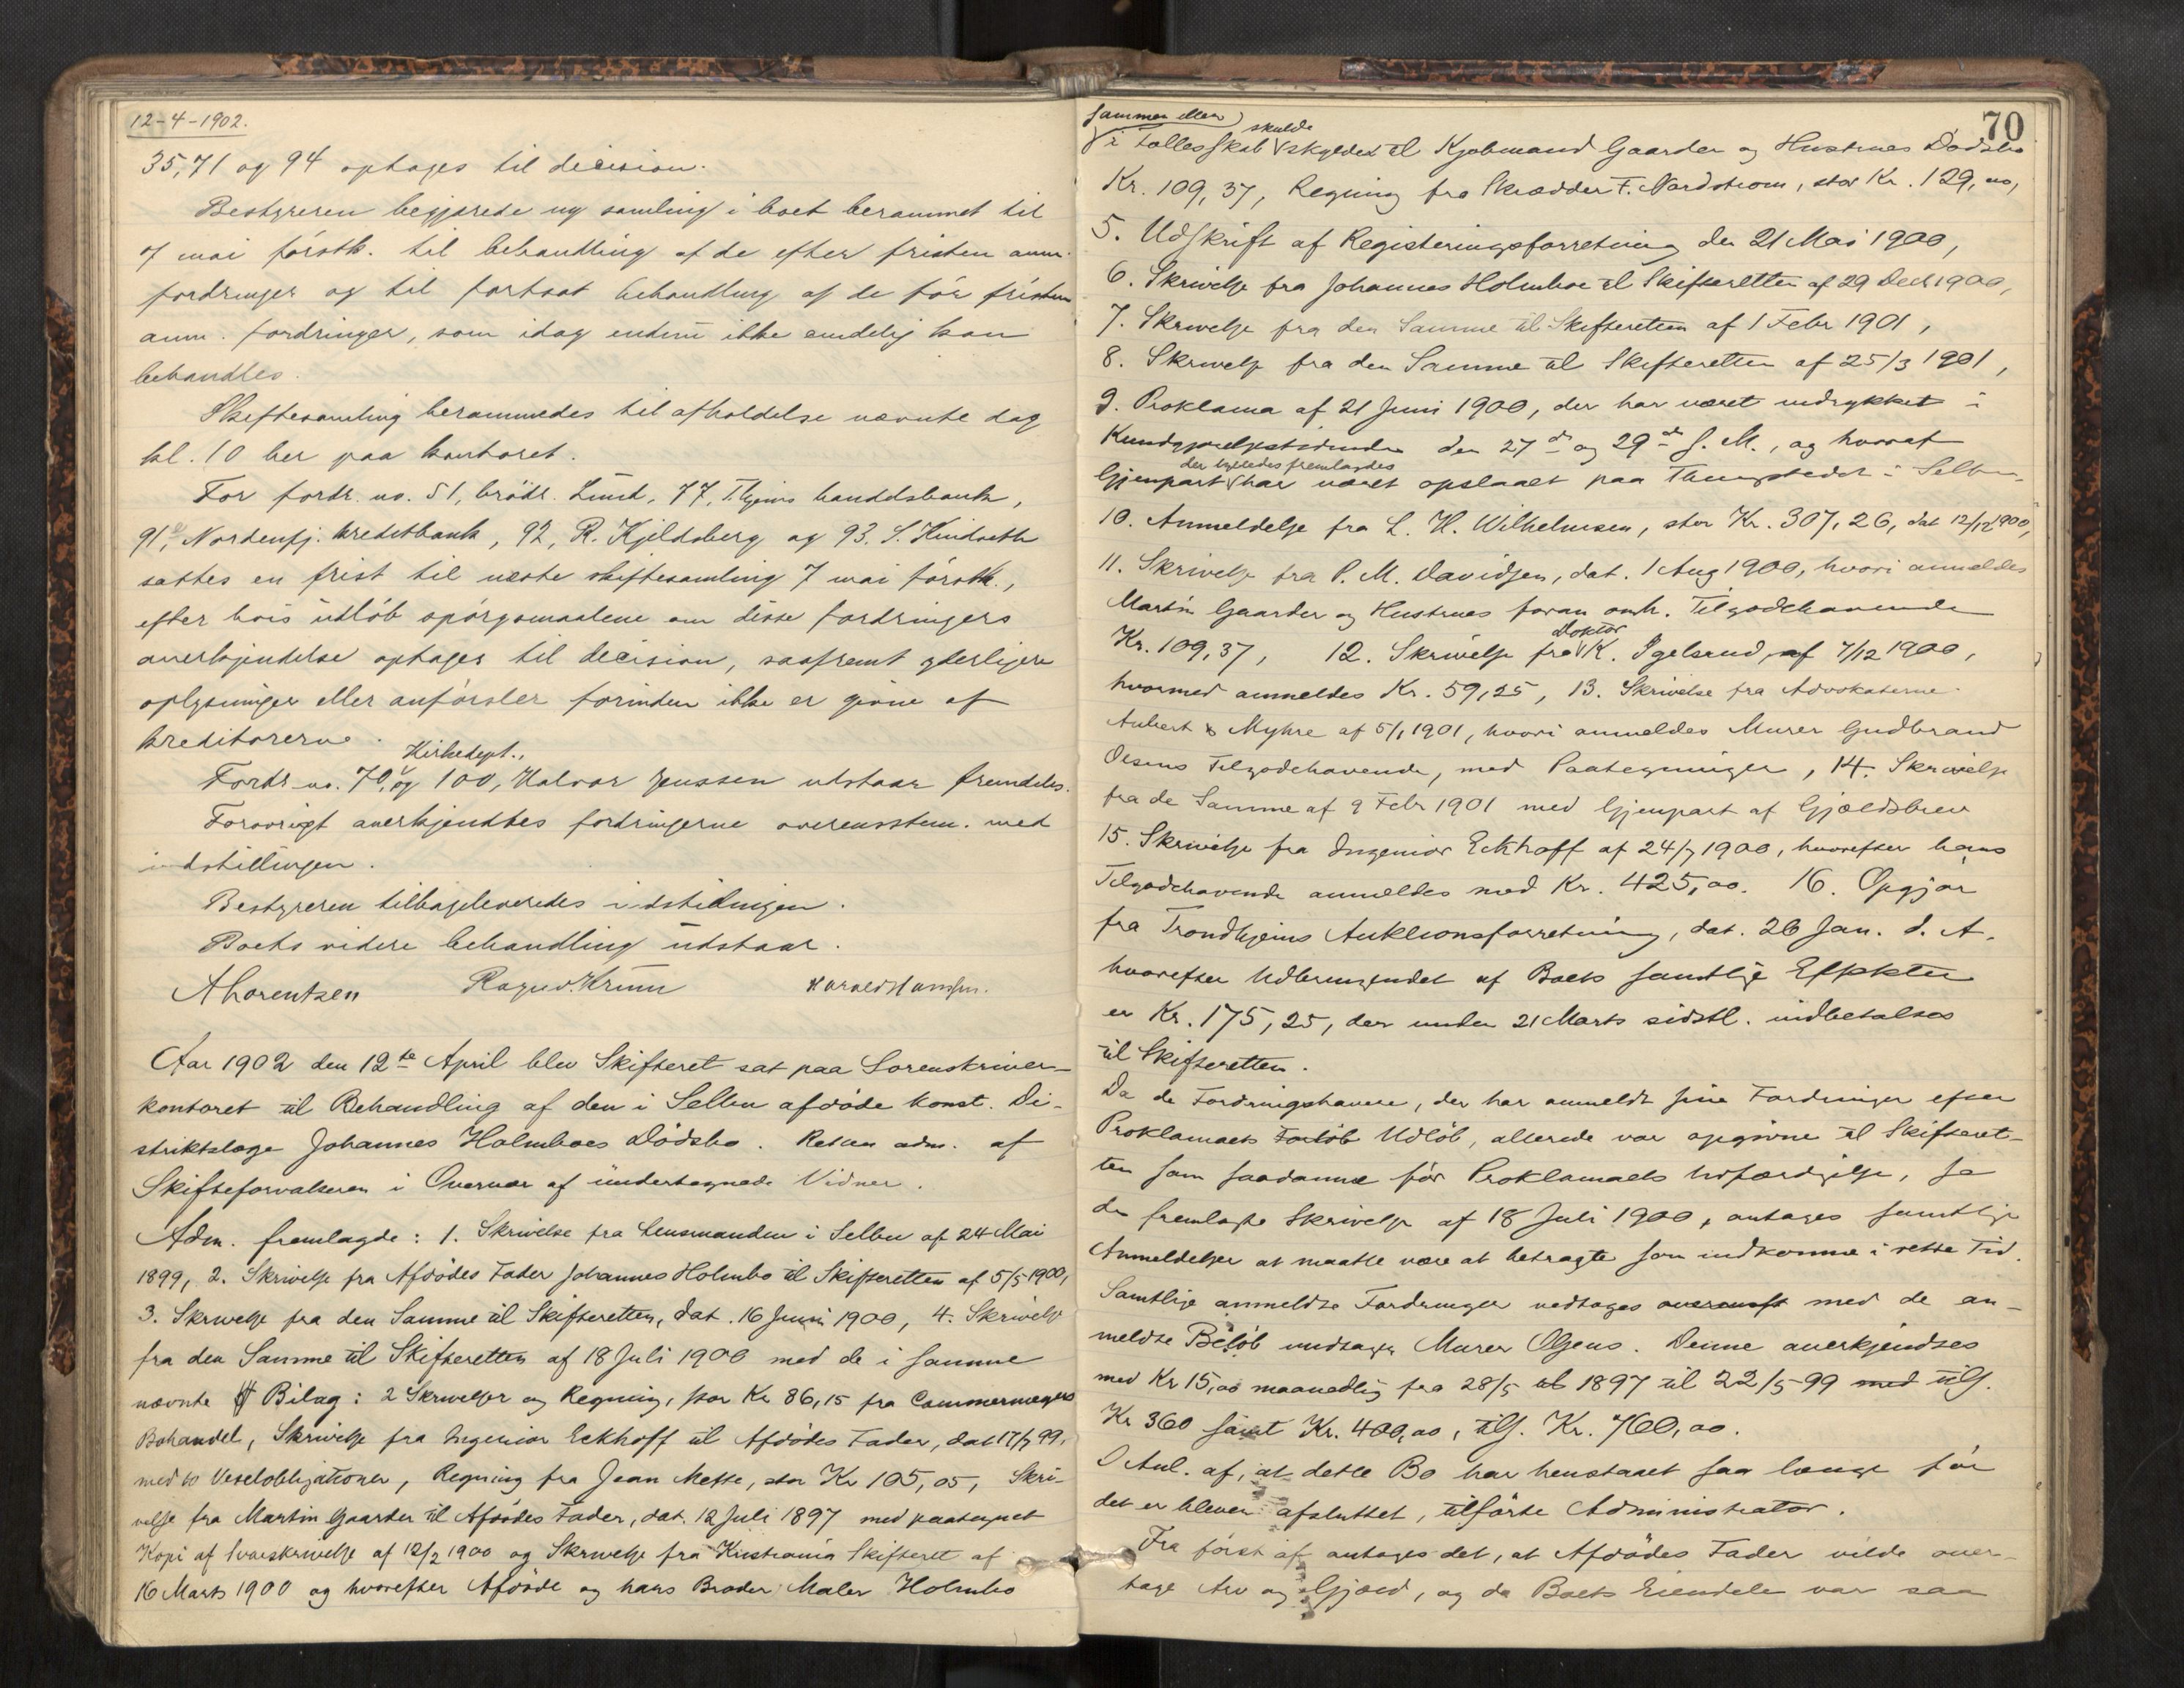 12-4-1902.
35, 71 og 94 optages til decision.
Bestyreren begjærede ny samling i boet berammet til
7 mai førstk. til behandling af de efter fristen anm.
fordringer og til fortsat behandling af de før fristen
anm. fordringer, som idag endnu ikke endelig kan
behandles.
Skiftesamling berammedes til afholdelse nævnte dag
kl. 10 her paa kontoret.
For fordr. no. 51, brödr. Lund, 77, Thjems handelsbank,
91, Nordenfj. kreditbank, 92, R. Kjeldsberg og 93. S. Hindseth
sattes en frist til næste skiftesamling 7 mai førstk.,
efter hvis udløb spørgsmaalene om disse fordringers
anerkjendelse optages til decision, saafremt yderligere
oplysninger eller anførsler forinden ikke er givne af
kreditorerne.
Kirkedept.,
Fordr. no. 70, og 100, Halvor Jenssen utstaar fremdeles.
Forøvrigt anerkjendtes fordringerne overensstem. med
indstillingen.
Bestyreren tilbageleveredes indstillingen.
Boets videre behandling udstaar.
A Lorentzen Ragnv. Krum Harald Hansen.
Aar 1902 den 12te April blev Skifteret sat paa Sorenskriver-
kontoret til Behandling af den i Selbu afdøde konst. Di-
striktslæge Johannes Holmboes Dødsbo. Retten adm. af
Skifteforvalteren i Overvær af undertegnede Vidner.
Adm. fremlagde: 1. Skrivelse fra Lensmanden i Selbu af 24 Mai
1899, 2. Skrivelse fra Afdødes Fader Johannes Holmbo til Skifteretten af 5/5 1900,
3. Skrivelse fra den Samme til Skifteretten, dat. 16 Juni 1900, 4. Skrivelse
fra den Samme til Skifteretten af 18 Juli 1900 med de i samme
nævnte Bilag: 2 Skrivelser og Regning, stor Kr 86,15 fra Cammermeyers
Bohandel, Skrivelse fra Ingeniør Eckhoff til Afdødes Fader, dat 17/7 99,
med to Vexelobligationer, Regning fra Jean Mette, stor Kr 105,05, Skri-
velse fra Martin Gaarder til Afdødes Fader, dat. 12 Juli 1897 med paategnet
Kopi af Svarskrivelse af 12/2 1900 og Skrivelse fra Kristiania Skifteret af
16 Marts 1900 og hvorefter Afdøde og hans Broder Maler Holmbo
70
sammen eller
skulde
i Fællesskab skyldes til Kjøbmand Gaarder og Hustrues Dødsbo
Kr. 109,37, Regning fra Skrædder F. Nordstrom, stor Kr. 129,00,
5. Udskrift af Registeringsforretning den 21 Mai 1900,
6. Skrivelse fra Johannes Holmboe til Skifteretten af 29 Decb 1900,
7. Skrivelse fra den Samme til Skifteretten af 1 Febr 1901,
8. Skrivelse fra den Samme til Skifteretten af 25/3 1901,
9. Proklama af 21 Juni 1900, der har været indrykket i
Kundgjørelsestidende den 27de og 29de s. M., og hvoraf
der ligeledes fremlagdes
Gjenpart har været opslaaet paa Thingstedet i Selbu.
10. Anmeldelse fra L. H. Wilhelmsen, stor Kr. 307,26, dat 12/12 1900,
11. Skrivelse fra P. M. Davidsen, dat. 1 Aug 1900, hvori anmeldes
Martin Gaarder og Hustrues foran omh. Tilgodehavende
Doktor
Kr. 109,37, 12. Skrivelse fra K. Igelsrud, af 7/12 1900,
hvormed anmeldes Kr. 59,25, 13. Skrivelse fra Advokaterne
Aubert & Myhre af 5/1 1901, hvori anmeldes Murer Gudbrand
Olsens Tilgodehavende, med Paategninger, 14. Skrivelse
fra de Samme af 9 Febr 1901 med Gjenpart af Gjældsbrev
15. Skrivelse fra Ingeniør Eckhoff af 24/7 1900, hvorefter hans
Tilgodehavende anmeldes med Kr. 425,00. 16. Opgjør
fra Trondhjems Auktionsforretning, dat. 26 Jan. d. A.
hvorefter Udbringendet af Boets samtlige Effekter
er Kr. 175,25, der under 21 Marts sidstl. indbetaltes
til Skifteretten.
Da de Fordringshavere, der har anmeldt sine Fordringer efter
Proklamaets Forløb Udløb, allerede var opgivne til Skifteret-
ten som saadanne før Proklamaets Udfærdigelse, se
den fremlagte Skrivelse af 18 Juli 1900, antages samtlige
Anmeldelser at maatte være at betragte som indkomne i rette Tid.
Samtlige anmeldte Fordringer vedtages overensst med de an-
meldte Beløb undtagen Murer Olsens. Denne anerkjendtes
med Kr 15,00 maanedlig fra 28/5 til 1897 til 22/5-99 med tils.
Kr 360 samt Kr. 400,00, tils. Kr. 760,00.
I Anl. af, at dette Bo har henstaaet saa længe før
det er bleven afsluttet, tilførte Administrator.
Fra først af antages det, at Afdødes Fader vilde over-
tage Arv og Gjæld, og da Boets Eiendele var saa